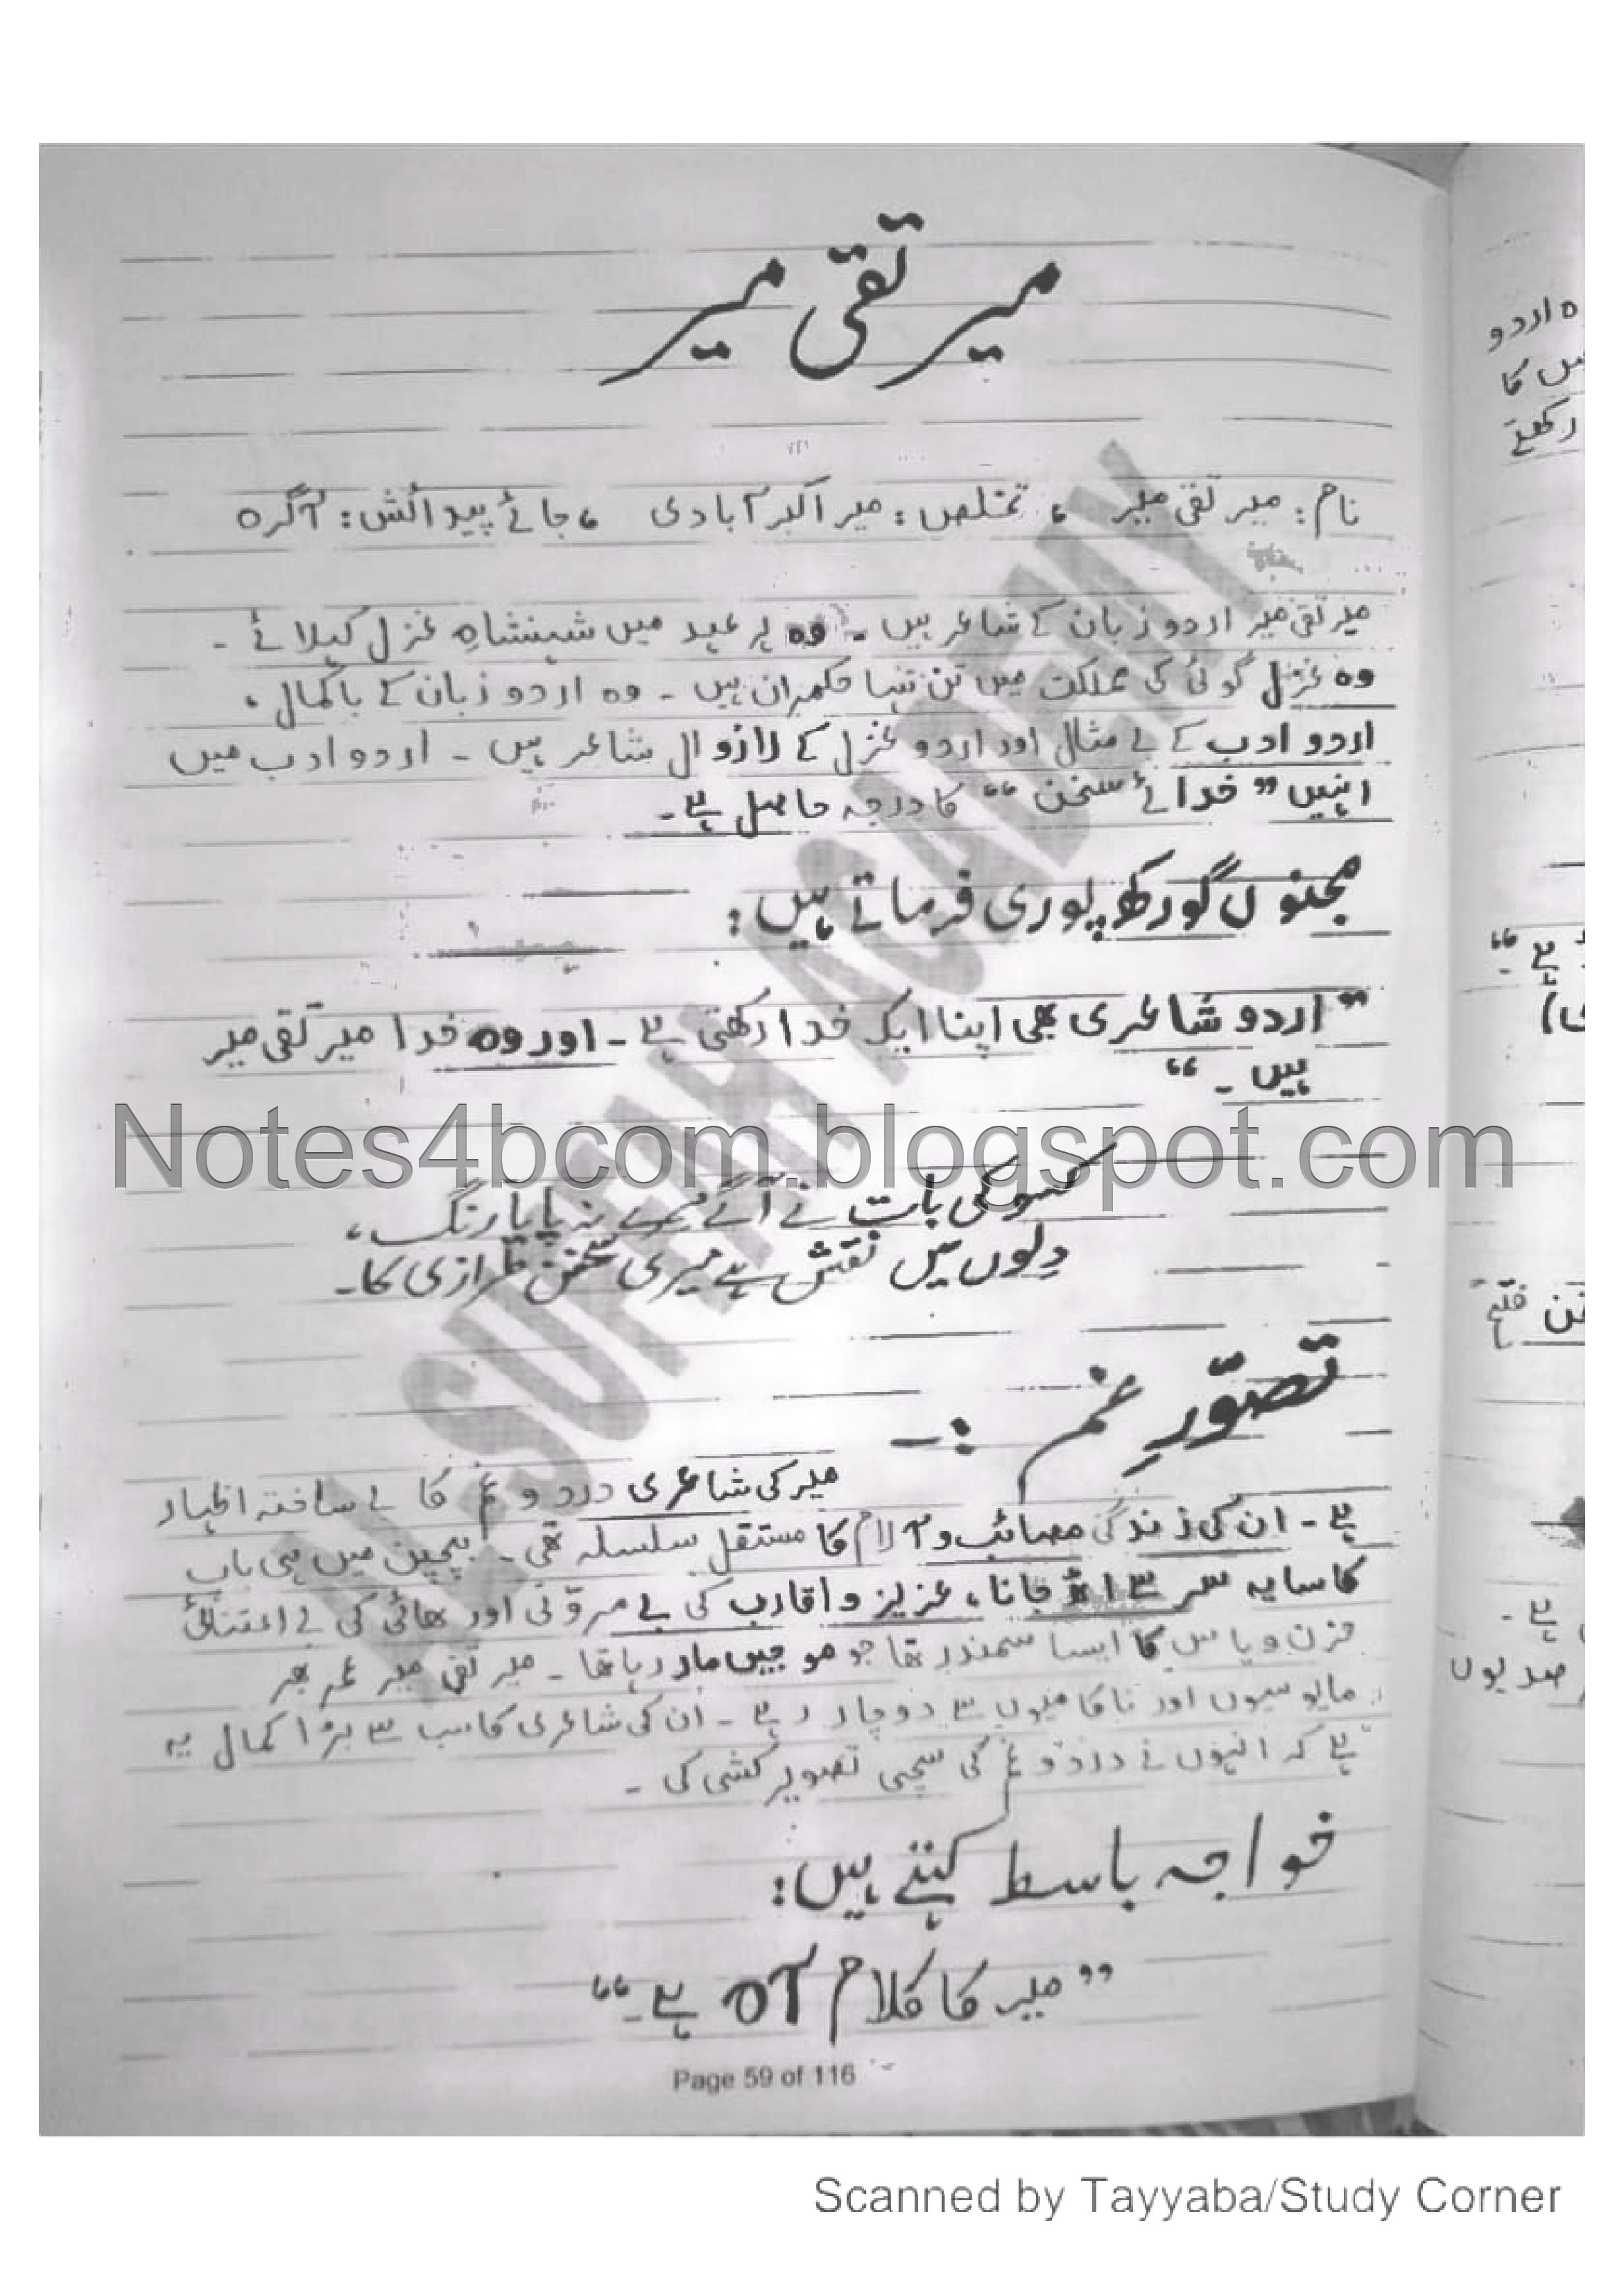 میر تقی میر
نام: میر تقی میر ، تخلص: میر اکبر آبادی ، جائے پیدائش: آگرہ
میر تقی میر اردو زبان کے شاعر ہیں۔ وہ ہر عہد میں شہنشاہِ غزل کہلائے۔
وہ غزل گوئی کی مملکت میں تن تنہا حکمران ہیں۔ وہ اردو زبان کے باکمال،
اردو ادب کے بے مثال اور اردو غزل کے لازوال شاعر ہیں۔ اردو ادب میں
انہیں "خدائے سخن" کا درجہ حاصل ہے۔
مجنوں گورکھ پوری فرماتے ہیں:
"اردو شاعری بھی اپنا ایک خدا رکھتی ہے۔ اور وہ خدا میر تقی میر
ہیں۔"
Notes4bcom.blogspot.com
کسو کی بات نے آگے میرے نہ پایا رنگ،
دِلوں میں نقش ہے میری سخن طرازی کا۔
تصوّرِ غم :-
میر کی شاعری درد و غم کا بے ساختہ اظہار
ہے۔ ان کی زندگی مصائب و آلام کا مستقل سلسلہ تھی۔ بچپن میں ہی باپ
کا سایہ سر سے اٹھ جانا، عزیز و اقارب کی بے مروّتی اور بھائی کی بے اعتنائی
حزن و یاس کا ایسا سمندر تھا جو موجیں مار رہا تھا۔ میر تقی میر عمر بھر
مایوسیوں اور ناکامیوں سے دوچار رہے۔ ان کی شاعری کا سب سے بڑا کمال یہ
ہے کہ انہوں نے درد و غم کی سچی تصویر کشی کی۔
خواجہ باسط کہتے ہیں:
"میر کا کلام آہ ہے۔"
Page 59 of 116
Scanned by Tayyaba/Study Corner
ہ اردو
رکھتے
صدیوں